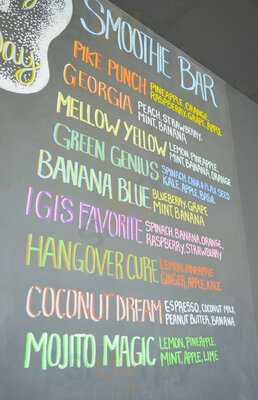 Day
SMOOTHIE BAR
PIKE PUNCH PINEAPPLE, ORANGE,
RASPBERRY, GRAPE, APPLE
GEORGIA PEACH, STRAWBERRY,
MINT, BANANA
MELLOW YELLOW LEMON, PINEAPPLE
MINT, BANANA, ORANGE
GREEN GENIUS SPINACH, CHIA & FLAX SEED
KALE, APPLE, BASIL
BANANA BLUE BLUEBERRY, GRAPE
MINT, BANANA
IGIS FAVORITE SPINACH, BANANA, ORANGE,
RASPBERRY, STRAWBERRY
HANGOVER CURE LEMON, PINEAPPLE
GINGER, APPLE, KALE
COCONUT DREAM ESPRESSO, COCONUT MILK,
PEANUT BUTTER, BANANA
MOJITO MAGIC LEMON, PINEAPPLE,
MINT, APPLE, LIME